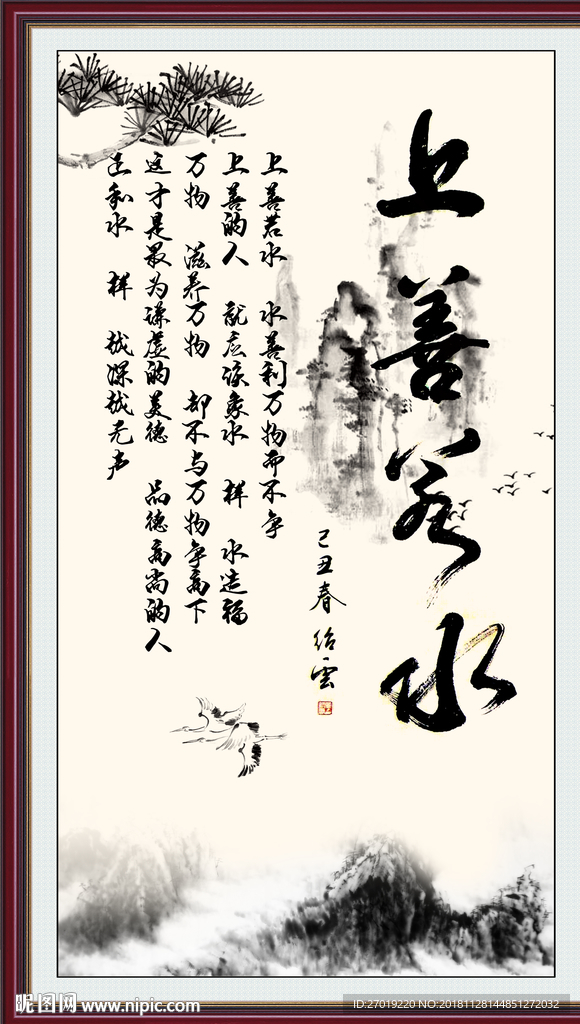 上善若水
己丑春 绍雲
上善若水 水善利万物而不争
上善的人 就应该象水 样 水造福
万物 滋养万物 却不与万物争高下
这才是最为谦虚的美德 品德高尚的人
正和水 样 越深越无声
昵图网 www.nipic.com
ID:27019220 NO:20181128144851272032